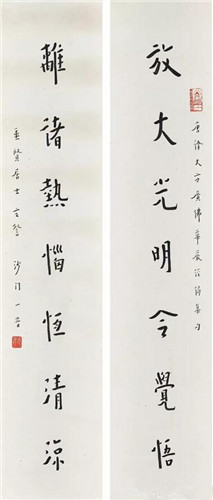 放大光明令覺悟
唐譯大方廣佛華嚴經頌集句
離諸熱惱恆清涼
賢居士 沙門一音